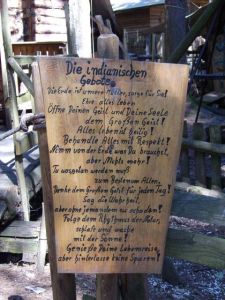 Die indianischen
Gebote
Die Erde ist unsere Mutter, sorge für Sie!
Ehre alles leben
Öffne Deinen Geist und Deine Seele
dem Großen Geist!
Alles leben ist heilig!
Behandle Alles mit Respekt!
Nimm von der Erde was Du brauchst,
aber Nichts mehr!
Tu was getan werden muß
zum Besten von Allen
Danke dem Großen Geist für jeden Tag!
Sag die Wahrheit,
aber ohne jemandem zu schaden!
Folge dem Rhythmus der Natur,
schlafe und wache
mit der Sonne!
Genieße Deine Lebensreise,
aber hinterlasse keine Spuren!